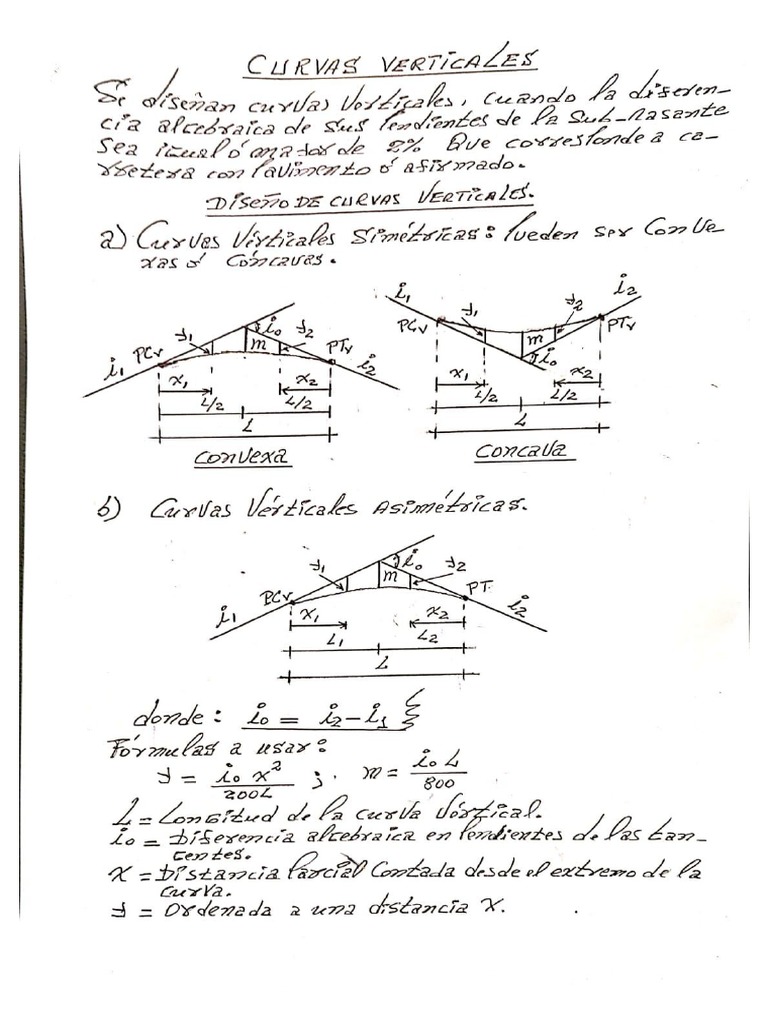 CURVAS VERTICALES
Se diseñan curvas Verticales, cuando la diferen-
cia algebraica de sus pendientes de la Sub-Rasante
sea igual ó mayor de 2% Que corresponde a ca-
rretera con Pavimento ó afirmado.
DISEÑO DE CURVAS VERTICALES.
a) Curvas Vérticales Simétricas: Pueden ser Conve
xas ó Cóncavas.
i1 PCv y1 i0 m y2 PTv i2
x1 x2
L/2 L/2
L
CONVEXA
i1 PCv y1 m i0 y2 PTv i2
x1 x2
L/2 L/2
L
CONCAVA
b) Curvas Vérticales Asimétricas.
i1 PCv y1 i0 m y2 PT. i2
x1 x2
L1 L2
L
donde: i0 = i2-i1
Fórmulas a usar:
y = i0 x² / 200L ; m = i0 L / 800
L = Longitud de la curva Vértical.
i0 = Diferencia algebraica en Pendientes de las tan-
gentes.
X = Distancia Parcial Contada desde el extremo de la
curva.
y = Ordenada a una distancia X.